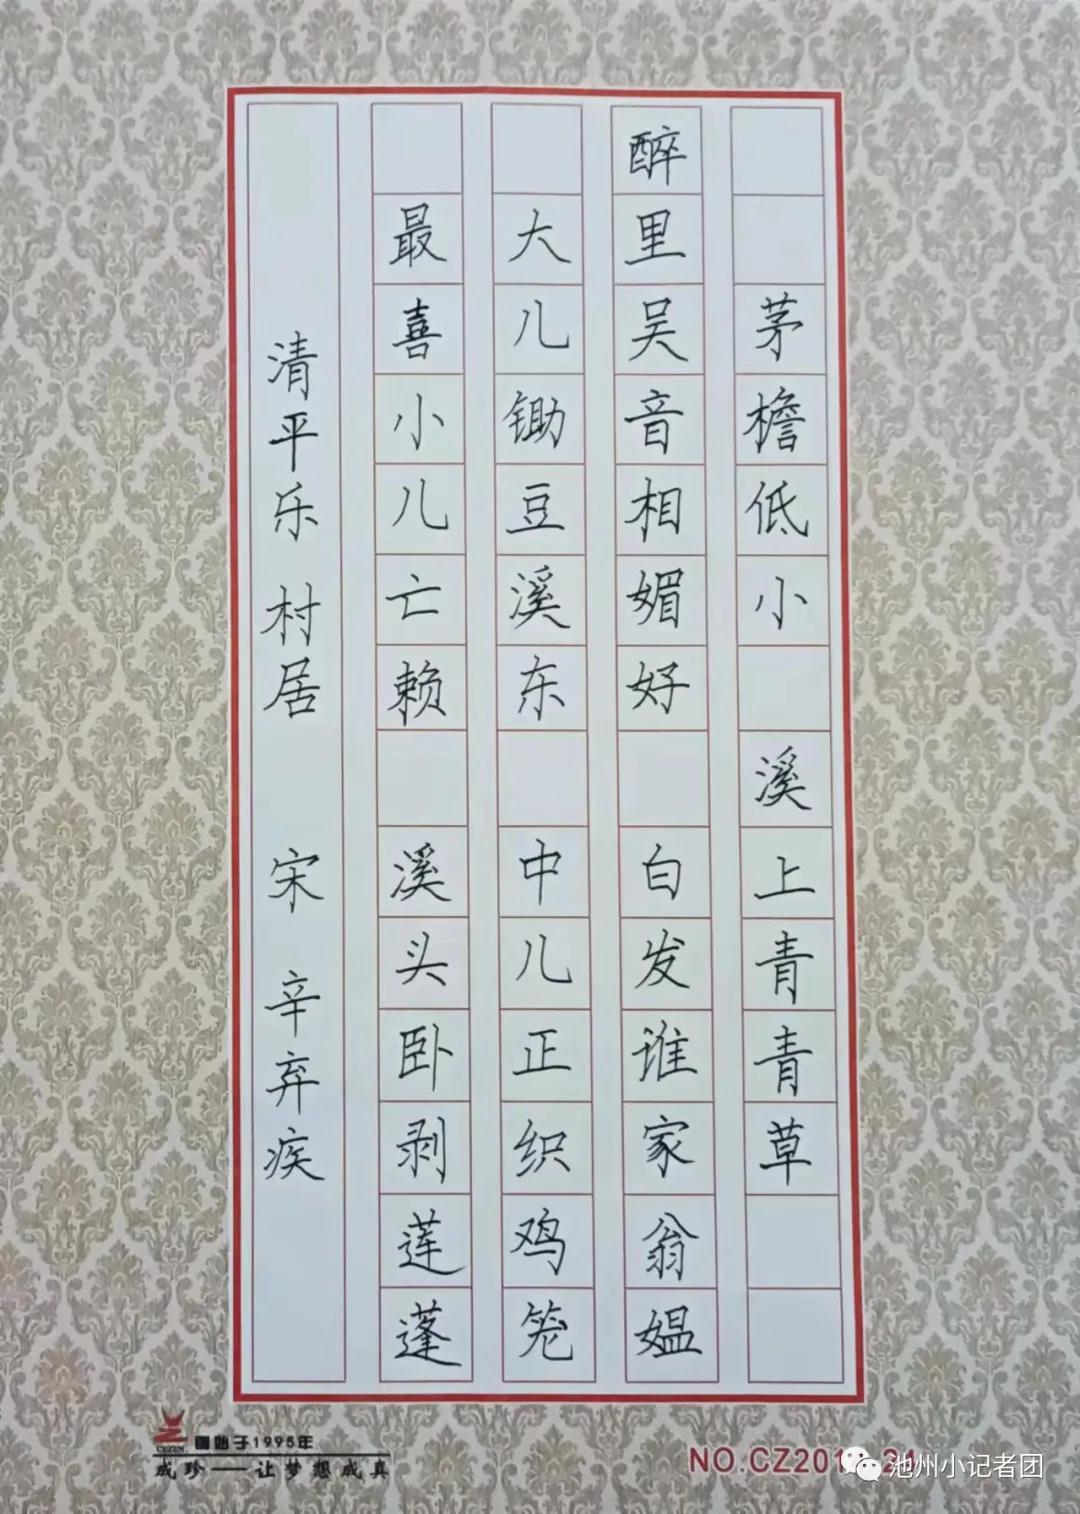 茅檐低小 溪上青青草
醉里吴音相媚好 白发谁家翁媪
大儿锄豆溪东 中儿正织鸡笼
最喜小儿亡赖 溪头卧剥莲蓬
清平乐 村居 宋 辛弃疾
CEZEN
始于1995年
成珍——让梦想成真
NO.CZ201
池州小记者团